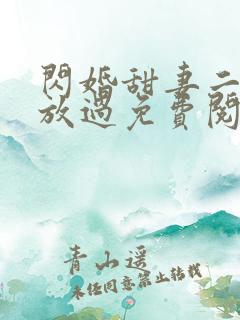 閃婚甜妻二
放過免費閱
青山遥
未经同意禁止转载